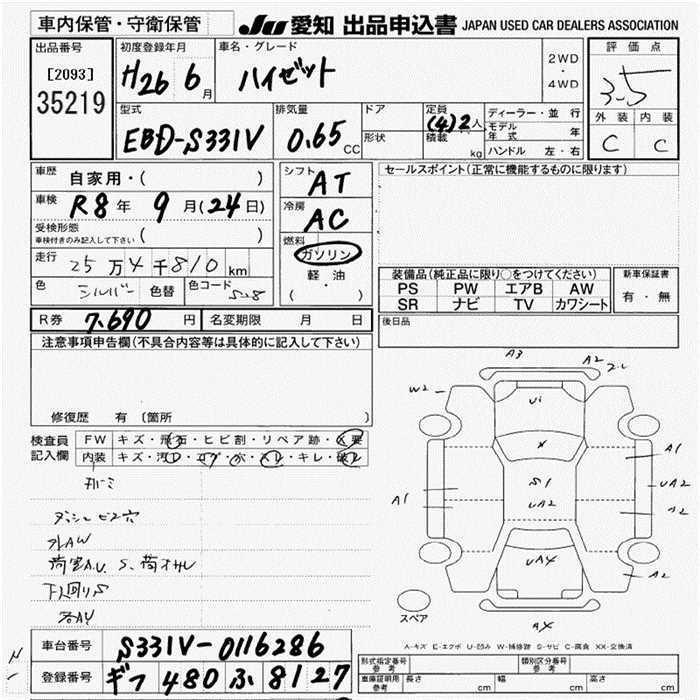 車内保管・守衛保管
JU 愛知 出品申込書 JAPAN USED CAR DEALERS ASSOCIATION
出品番号
[2093]
35219
初度登録年月
H26 6月
車名・グレード
ハイゼット
2WD
・
4WD
評価点
3.5
外装 内装
C C
型式
EBD-S331V
排気量
0.65 CC
ドア
形状
定員
(4)2人
積載
kg
ディーラー・並行
モデル年式 年
ハンドル 左・右
車歴
自家用・( )
車検
R8年 9月(24日)
受検形態
車検付きのみ記入して下さい ( )
走行
25万4千810km
色
シルバー
色替
色コード
S28
シフト
AT
冷房
AC
燃料
ガソリン
軽油
( ・ )
セールスポイント(正常に機能するものに限ります)
装備品(純正品に限り○をつけてください)
PS PW エアB AW
SR ナビ TV カワシート
新車保証書
有・無
R券 7,690円
名変期限 月 日
後日品
注意事項申告欄(不具合内容等は具体的に記入して下さい)
修復歴 有 〔箇所 〕
検査員記入欄
FW キズ・飛石・ヒビ割・リペア跡・X要
内装 キズ・汚れ・コゲ・穴・スレ・キレ・破れ
ダッシュビス穴
外AW
荷室A.U S、荷オサレ
下回りS
A3
A2
W2
Ui
X
A1
S1
UA2
A1
UA2
A2
UA4
A2
AX
スペア
A-キズ E-エクボ U-凹み W-補修跡 S-サビ C-腐食 XX-交換済
車台番号
S331V-0116286
登録番号
ギフ 480 ふ 8127
型式指定番号
参考
類別区分番号
参考
車庫証明用
参考
長さ cm
幅 cm
高さ cm